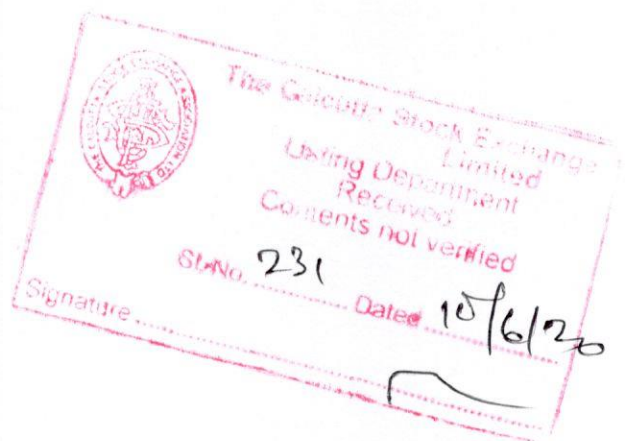 The Calcutta Stock Exchange
Limited
Listing Department
Received
Contents not verified
Sl. No. 231 Dated 10/6/20
Signature